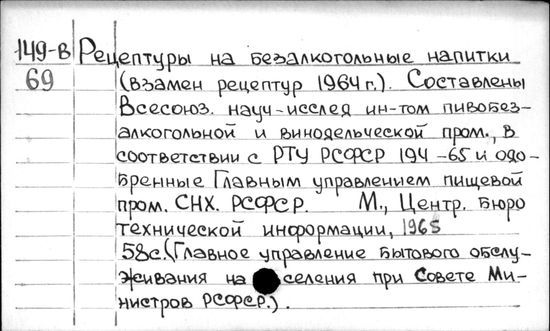 149-В Рецептуры на безалкогольные напитки
69 (взамен рецептур 1964 г.). Составлены
Всесоюз. науч-исслед ин-том пивобез-
алкогольной и винодельческой пром., в
соответствии с РТУ РСФСР 194-65 и одо-
бренные Главным управлением пищевой
пром. СНХ. РСФСР. М., Центр. Бюро
технической информации, 1965
58с. (Главное управление бытового обслу-
живания на селения при Совете Ми-
нистров РСФСР.).